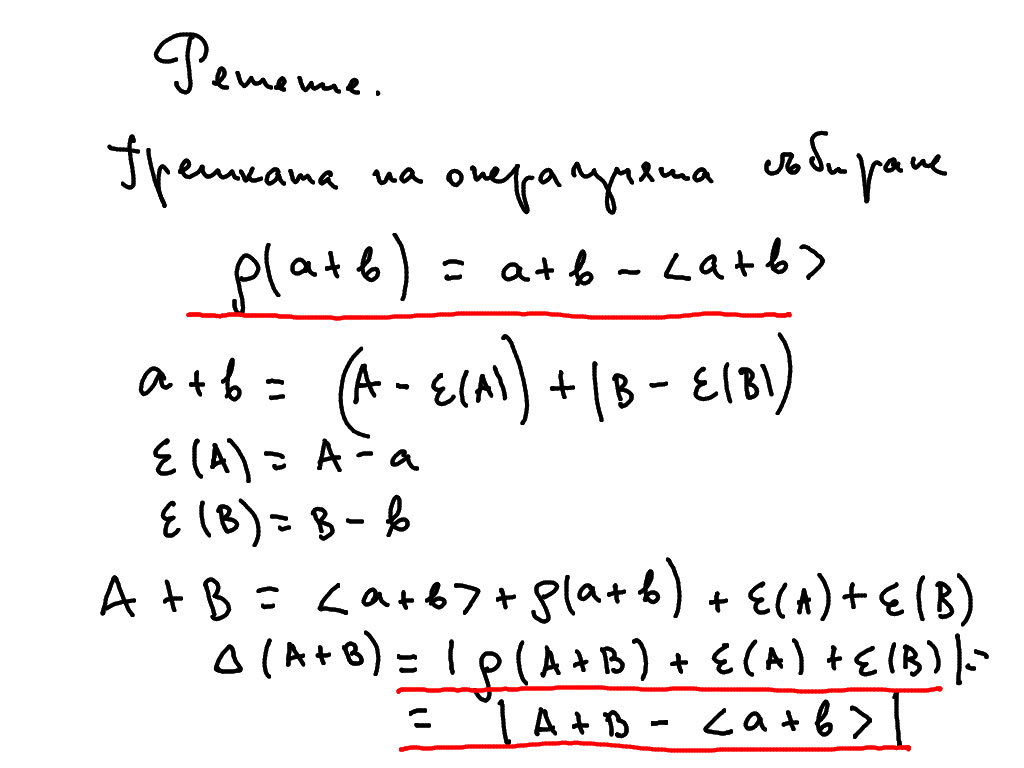 Решете.
Грешката на операцията събиране
ρ(a+b) = a+b - <a+b>
a+b = (A - ε(A)) + (B - ε(B))
ε(A) = A - a
ε(B) = B - b
A + B = <a+b> + ρ(a+b) + ε(A) + ε(B)
Δ(A+B) = |ρ(A+B) + ε(A) + ε(B)| =
= |A+B - <a+b>|